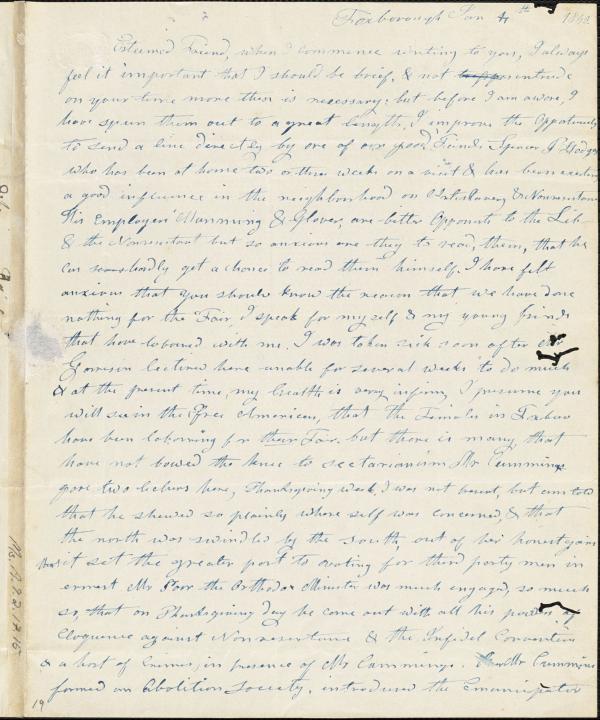 Foxborough Jan 4th 1842
Esteemed Friend, when I commence writing to you, I always
feel it important that I should be brief, & not
on your time more then is necessary; but before I am aware, I
have spun them out to a great length, I improve the Oppotunity
to send a line directly by one of our good Friends Spencer
who has been at home two or three weeks on a visit & has been
a good influence in the neighborhood on Antislavery & Nonresistance
His Employers Manning & Glover, are bitter Opponents to the Lib-
& the Nonresistant but so anxious are they to read, them, that he
can scearshardly get a chance to read them himself. I have felt
anxious that you should know the reason that we have done
nothing for the Fair I speak for myself & my young friends
that have laboured with me. I was taken sick soon after
Garrison lectured here unable for several weeks to do much
& at the present time, my health is very infirm, I presume you
will see in the Free American, that the Females in Foxboro
have been labouring for their Fair. but there is many that
have not bowed the knee to sectarianism Mr Cummings
gave two lectures here, Thanksgiving week, I was not present, but am told
that he shewed so plainly where self was concerned, & that
the north was swindled by the South, out of her honest gains
that it set the greater part to voting for third party men in
ernest Mr Poor the Orthodox Minister was much engaged, so much
so, that on Thanksgiving Day he come out with all his powers of
Eloquence against Nonresistance & the Infidel Convention
& a host of Enimes, in presence of Mr Cummings. Mr Cummings
formed an Abolition Society, introduced the Emancipator
19